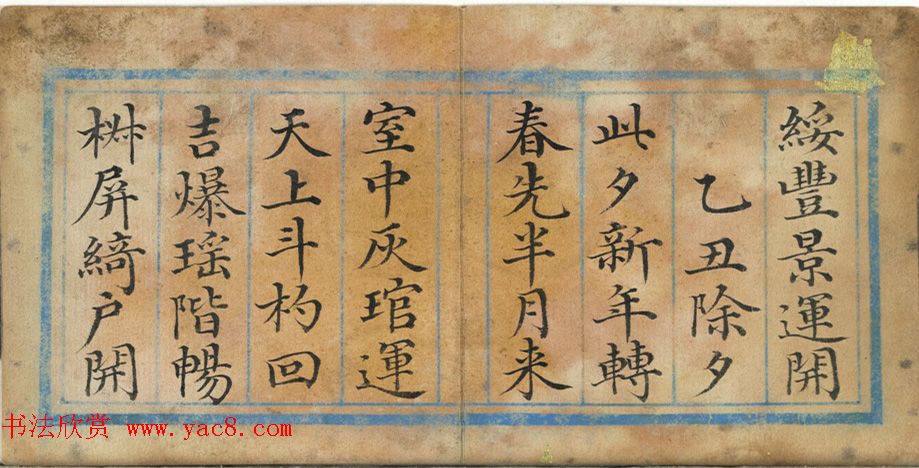 綏豐景運開
乙丑除夕
此夕新年轉
春先半月来
室中灰琯運
天上斗杓回
吉爆瑶階暢
椒屏綺户開
书法欣赏 www.yac8.com